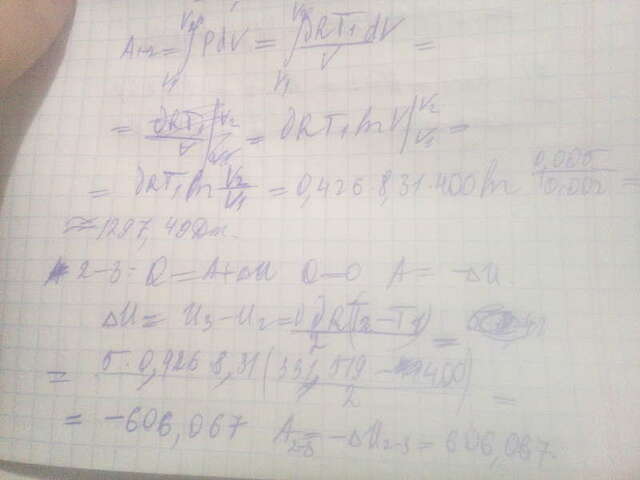 A₁₋₂ = ∫ V₁ V₂ PdV = ∫ V₁ V₂ ϑRT₁dV / V =
= ϑRT₁ ln V |V₂ V₁ =
= ϑRT₁ ln V₂/V₁ = 0,426·8,31·400 ln 0,005/0,002 =
≈ 1297,49 Дж.
2-3: Q = A + ΔU Q = 0 A = -ΔU.
ΔU = U₃ - U₂ = ϑR(T₂ - T₁) / 2 =
= 5·0,426·8,31(331,519 - 400) / 2 =
= -606,067 A₂₋₃ = -ΔU₂₋₃ = 606,067.